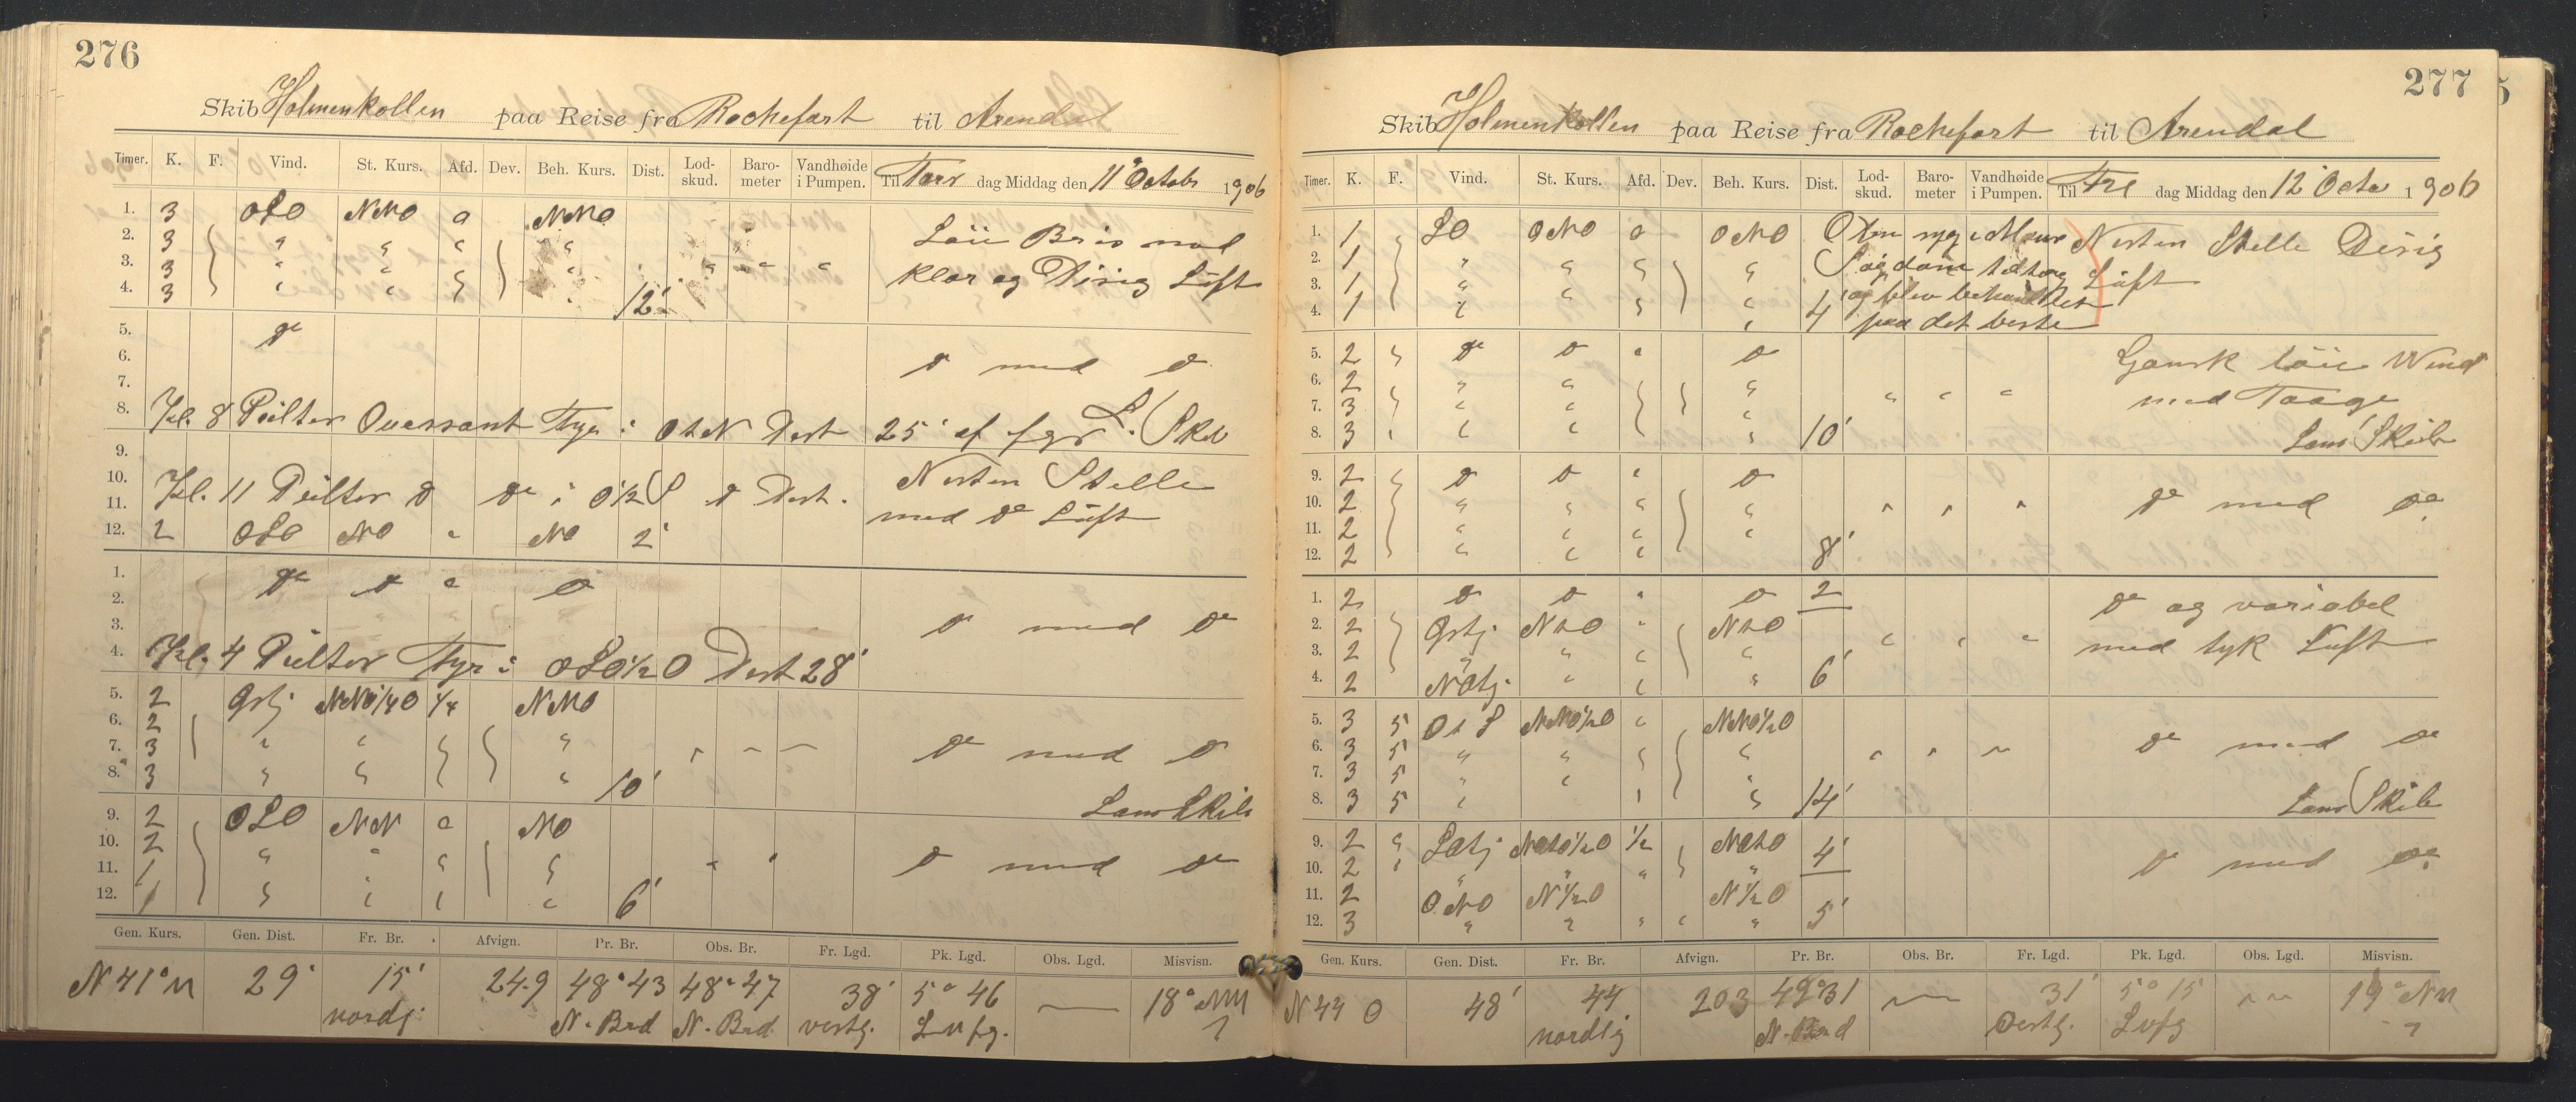 276
Skib Holmenkollen paa Reise fra Rochefort til Arendal
Timer. K. F. Vind. St. Kurs. Afd. Dev. Beh. Kurs. Dist. Lod-skud. Baro-meter Vandhøide i Pumpen. Til Tors dag Middag den 11 Octobr 1906
1. 3 OSO NNO a NNO
2. 3 " " " " Löie Bris med
3. 3 " " " " klar og Disig Lüft
4. 3 " " " 12'
5. do
6. do med do
7.
8. Kl. 8 Peilter Ouessant Fyr i OtN Dist 25' af fgr L. Skib
9.
10. Kl. 11 Peilter do do i O½S do Dist. Nesten Stelle
11. med do Lüft
12. 2 OSO NO " NO 2'
1. do do " do
2.
3. do med do
4. Kl. 4 Peilter Fyr i OSO½O Dist 28'
5. 2 Østj NNO¼O ¼ NNO
6. 2
7. 3 " " " " do med do
8. 3 " " " 10'
Lens Skib
9. 2 OSO NN a NO
10. 2 " " " "
11. 1 " do med do
12. 1 " " " " 6'
Gen. Kurs. Gen. Dist. Fr. Br. Afvign. Pr. Br. Obs. Br. Fr. Lgd. Pk. Lgd. Obs. Lgd. Misvisn.
N 41° 29' 15' 24.9 48° 43 48° 47 38' 5° 46 18°
nordl. N. Brd N. Brd vestg.
277
Skib Holmenkollen paa Reise fra Rochefort til Arendal
Timer. K. F. Vind. St. Kurs. Afd. Dev. Beh. Kurs. Dist. Lod-skud. Baro-meter Vandhøide i Pumpen. Til Fre dag Middag den 12 Octo 1906
1. 1 SO ONO a ONO Nesten Stelle Disig
2. 1 " " " " Lüft
3. 1 " "
4. 1 " " " 4' og blev behandlet
paa det beste
5. 2 " do do " do Gansk löie Wind
6. 2 " " " " med Taage
7. 3 " " "
8. 3 " " " " 10' Lens Skib
9. 2 " do do " do
10. 2 " " " " do med do
11. 2 " " "
12. 2 " " " 8'
1. 2 do do " do 2 do og variabel
2. 2 Østj. NtO " NtO
3. 2 " " " " med tyk Luft
4. 2 NOtj. " " " 6'
5. 3 5 OtS NNO½O " NNO½O
6. 3 5 " " " " do med do
7. 3 5 " "
8. 3 5 " " " 14' Lens Skib
9. 2 " ½ 4'
10. 2 " " " " do med do
11. 2 ONO N½O N½O
12. 3 " " " " " 5'
Gen. Kurs. Gen. Dist. Fr. Br. Afvign. Pr. Br. Obs. Br. Fr. Lgd. Pk. Lgd. Obs. Lgd. Misvisn.
N 44 O 48' 44 203 49° 31 31' 5° 15 19°
nordlig N. Brd Oestg.